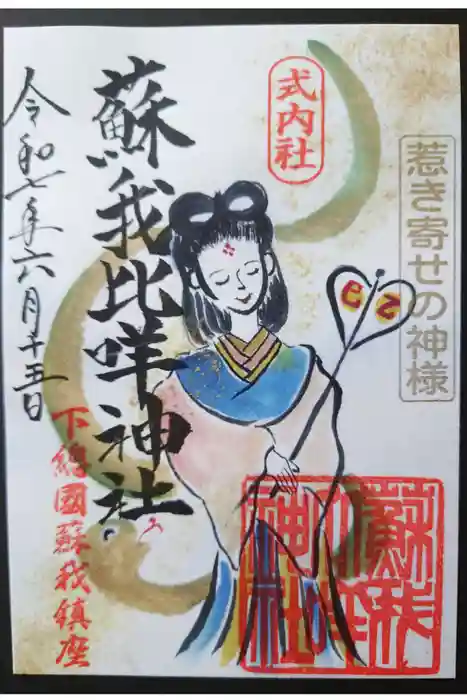 惹き寄せの神様
式内社
乙
巳
蘇我比咩神社
下総國蘇我鎮座
令和七年六月十五日
蘇我比咩神社